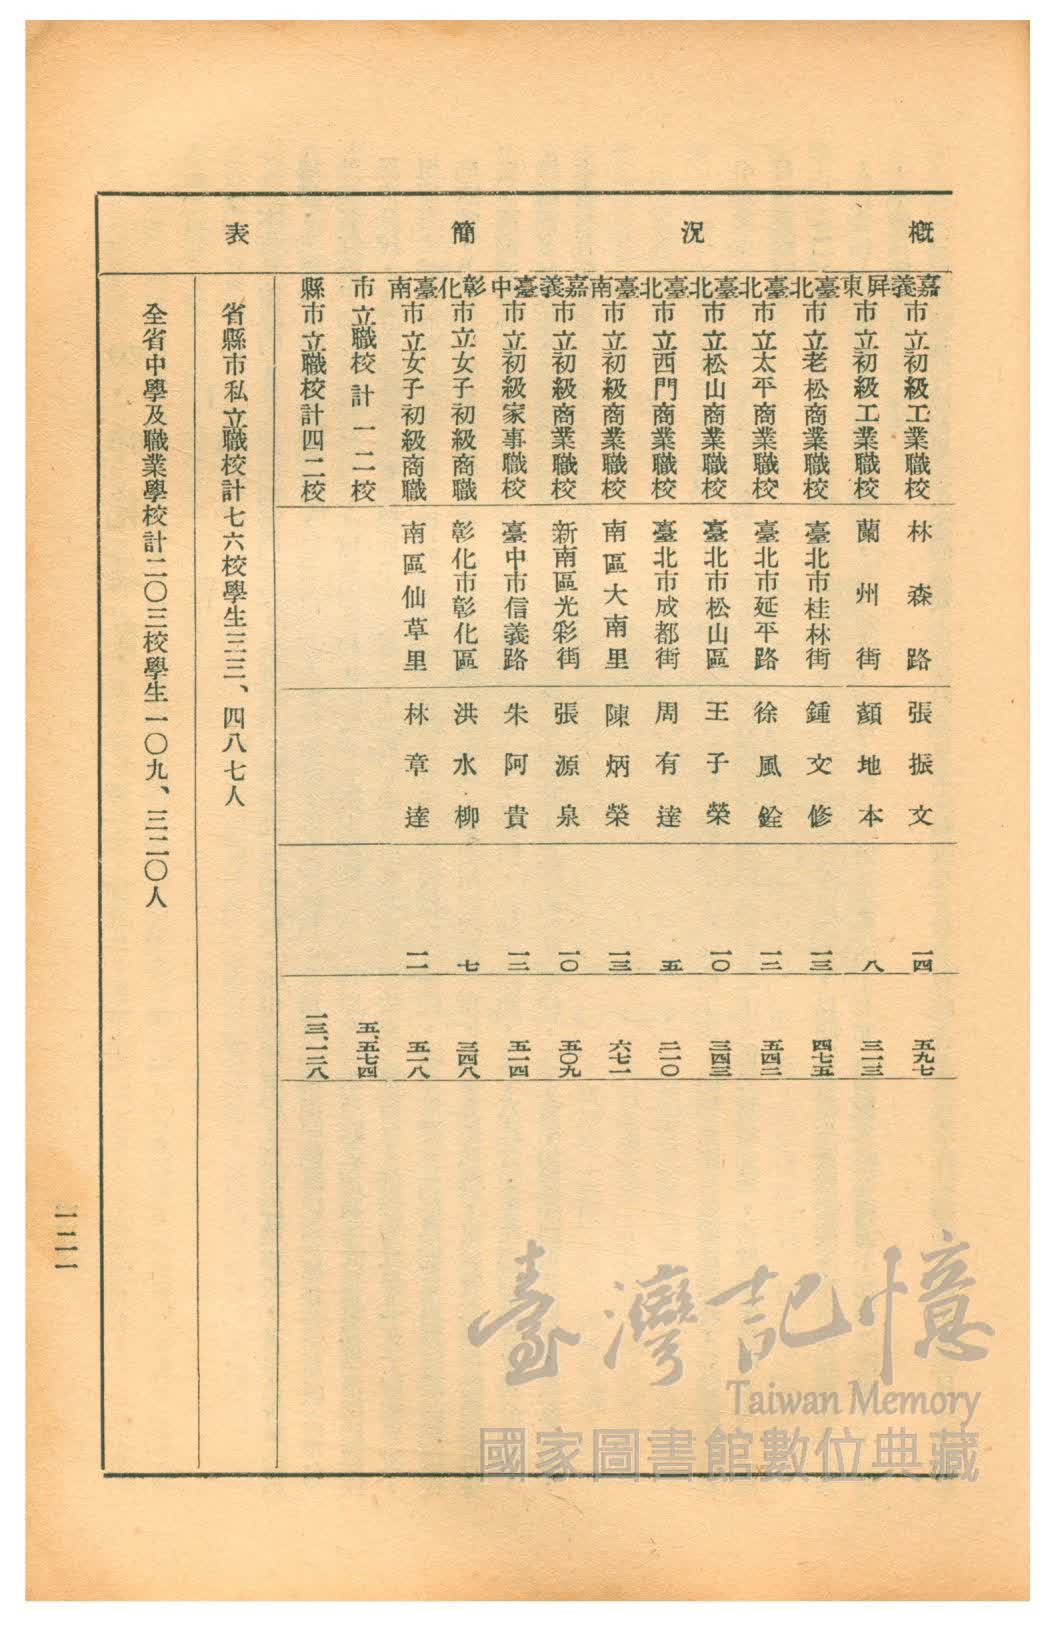 概況簡表
嘉義市立初級工業職校 林森路 張振文 一四 五九七
屏東市立初級工業職校 蘭州街 顏地本 八 三一三
臺北市立老松商業職校 臺北市桂林街 鍾文修 一三 四七五
臺北市立太平商業職校 臺北市延平路 徐風銓 一二 五四二
臺北市立松山商業職校 臺北市松山區 王子榮 一〇 三四三
臺北市立西門商業職校 臺北市成都街 周有達 五 二一〇
臺南市立初級商業職校 南區大南里 陳炳榮 一三 六七一
嘉義市立初級商業職校 新南區光彩街 張源泉 一〇 五〇九
臺中市立初級家事職校 臺中市信義路 朱阿貴 一二 五一四
彰化市立女子初級商職 彰化市彰化區 洪水柳 七 三四八
臺南市立女子初級商職 南區仙草里 林章達 一一 五一八
市立職校計一二校 五、五七四
縣市立職校計四二校 一三、一二八
省縣市私立職校計七六校學生三三、四八七人
全省中學及職業學校計二〇三校學生一〇九、三二〇人
一二一
臺灣記憶
Taiwan Memory
國家圖書館數位典藏